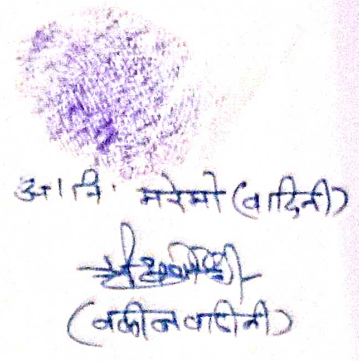 अ।नि. मरेमो (वादिनी)
(वकील वादीनी)